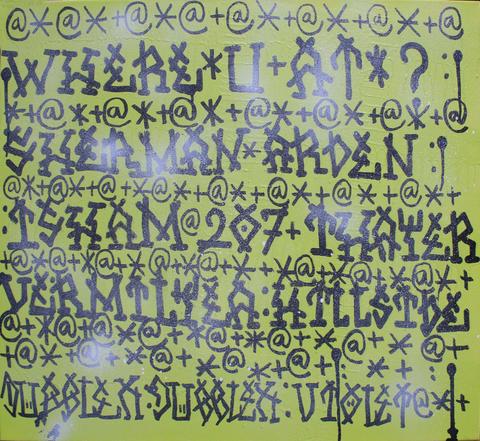 WHERE*U+AT*?:
SHERMAN*ARDEN:
:ISHAM@207+THAYER
VERMILYEA:HILLSIDE
DUBBLEX:DUBBLEX:VIOLET@*+